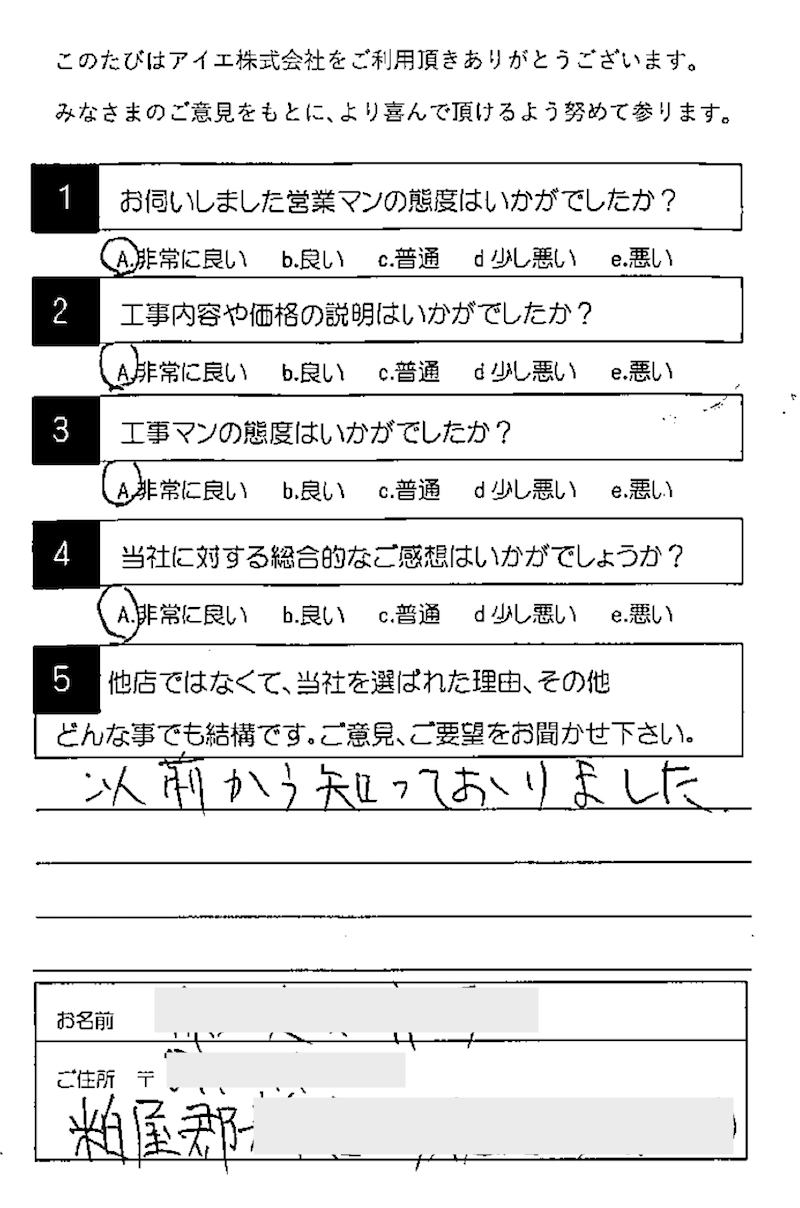 このたびはアイエ株式会社をご利用頂きありがとうございます。
みなさまのご意見をもとに、より喜んで頂けるよう努めて参ります。
1 お伺いしました営業マンの態度はいかがでしたか？
A.非常に良い b.良い c.普通 d 少し悪い e.悪い
2 工事内容や価格の説明はいかがでしたか？
A.非常に良い b.良い c.普通 d 少し悪い e.悪い
3 工事マンの態度はいかがでしたか？
A.非常に良い b.良い c.普通 d 少し悪い e.悪い
4 当社に対する総合的なご感想はいかがでしょうか？
A.非常に良い b.良い c.普通 d 少し悪い e.悪い
5 他店ではなくて、当社を選ばれた理由、その他
どんな事でも結構です。ご意見、ご要望をお聞かせ下さい。
以前から知っておりました
お名前
ご住所 〒
粕屋郡